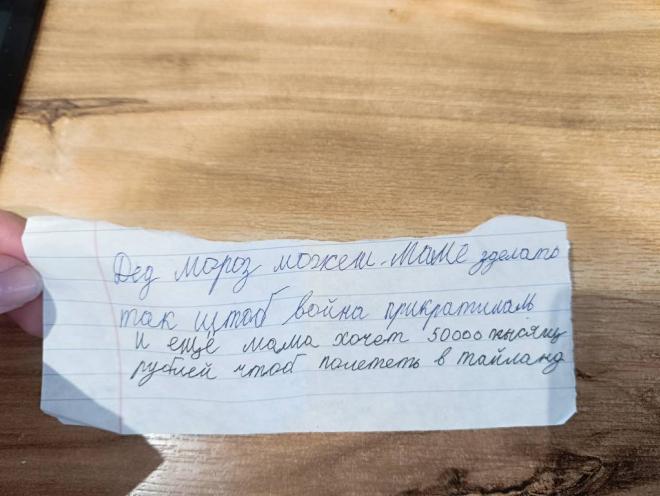 Дед мороз можеш маме зделать
так штоб война прикратилась
и ещё мама хочет 50000 тысяч
рублей чтоб полететь в тайланд